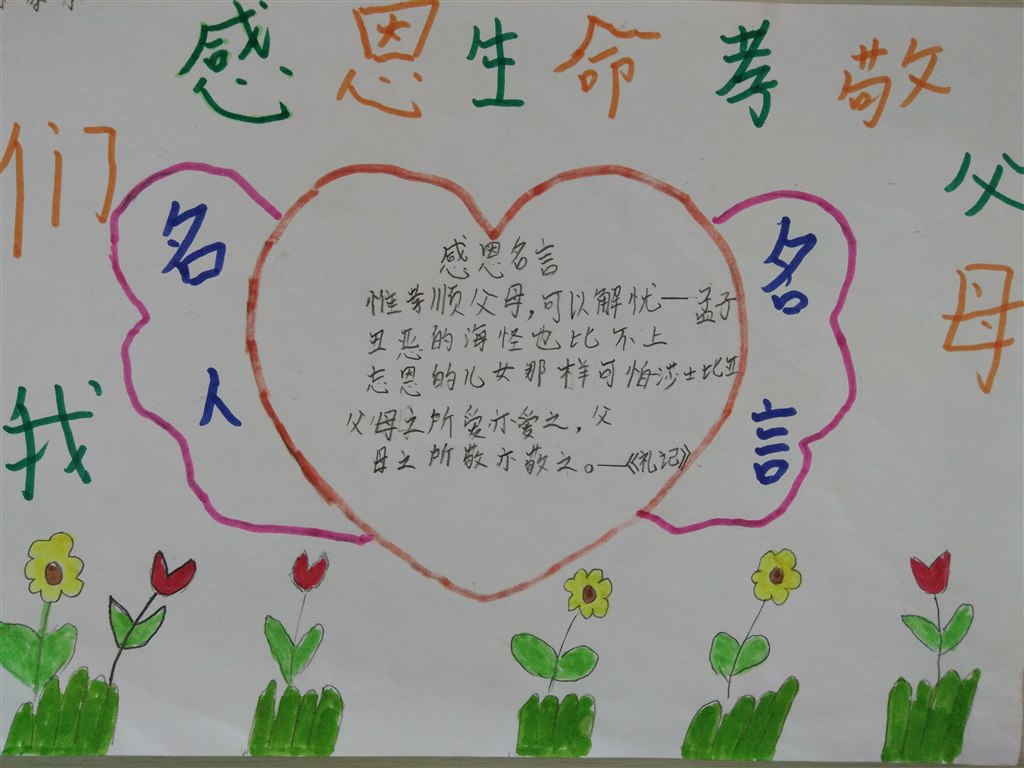 感恩生命孝敬
父
母
我
们
名
人
名
言
感恩名言
惟孝顺父母,可以解忧一孟子
丑恶的海怪也比不上
忘恩的儿女那样可怕莎士比亚
父母之所爱亦爱之,父
母之所敬亦敬之。—《礼记》